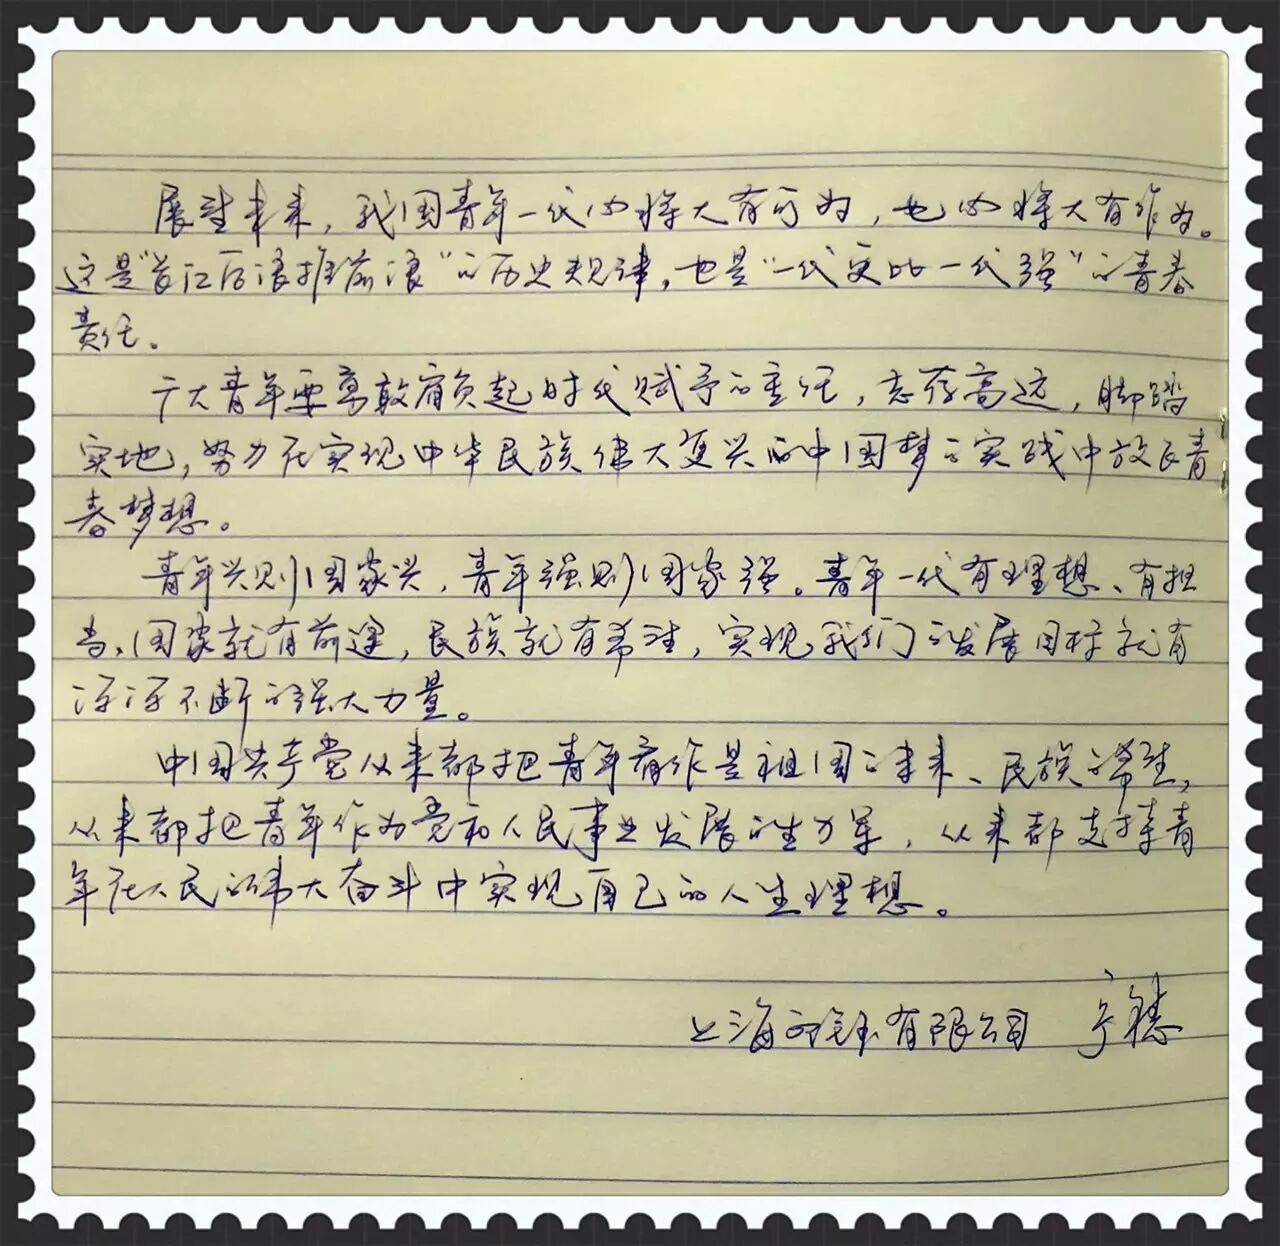 展望未来，我国青年一代必将大有可为，也必将大有作为。
这是“长江后浪推前浪”的历史规律，也是“一代更比一代强”的青春
责任。
广大青年要勇敢肩负起时代赋予的重任，志存高远，脚踏
实地，努力在实现中华民族伟大复兴的中国梦的实践中放飞青
春梦想。
青年兴则国家兴，青年强则国家强。青年一代有理想、有担
当，国家就有前途，民族就有希望，实现我们的发展目标就有
源源不断的强大力量。
中国共产党从来都把青年看作是祖国的未来、民族的希望，
从来都把青年作为党和人民事业发展的生力军，从来都支持青
年在人民的伟大奋斗中实现自己的人生理想。
上海 有限公司